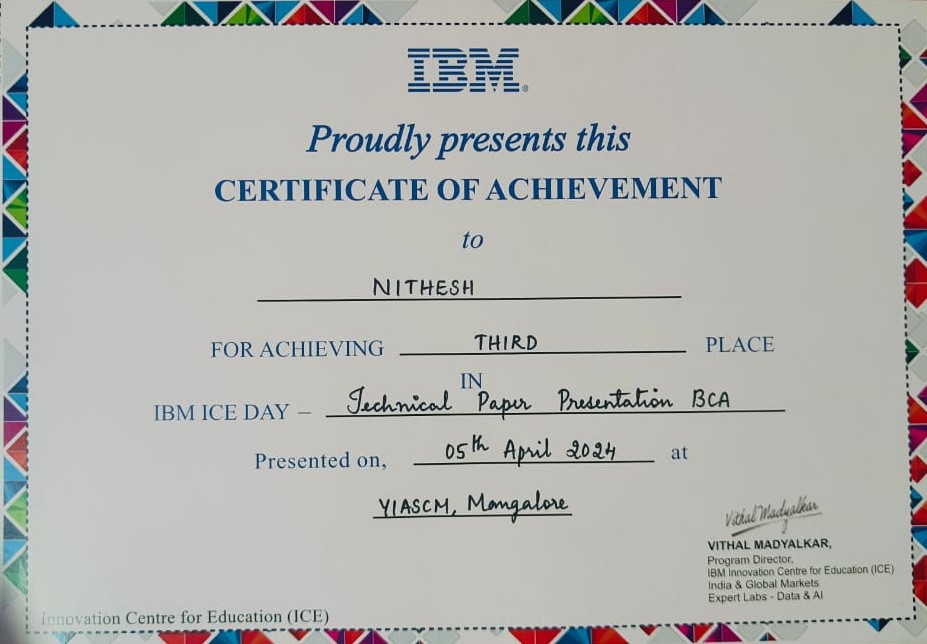 IBM®
Proudly presents this
CERTIFICATE OF ACHIEVEMENT
to
NITHESH
FOR ACHIEVING THIRD PLACE
IN
IBM ICE DAY – Technical Paper Presentation BCA
Presented on, 05th April 2024 at
YIASCM, Mangalore
Vithal Madyalkar
VITHAL MADYALKAR,
Program Director,
IBM Innovation Centre for Education (ICE)
India & Global Markets
Expert Labs - Data & AI
Innovation Centre for Education (ICE)